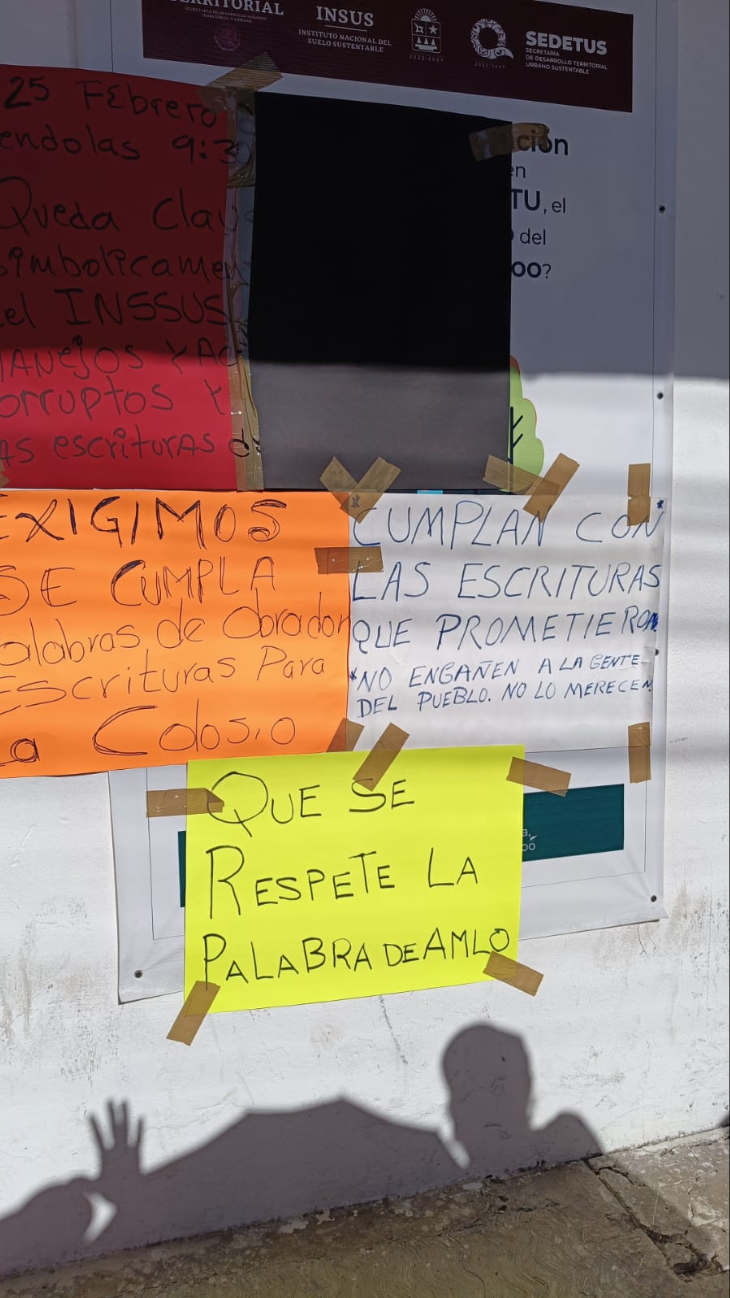 TERRITORIAL
SECRETARÍA DE DESARROLLO AGRARIO,
TERRITORIAL Y URBANO
INSUS
INSTITUTO NACIONAL DEL
SUELO SUSTENTABLE
2022-2027
SEDETUS
SECRETARÍA
DE DESARROLLO TERRITORIAL
URBANO SUSTENTABLE
2022-2027
25 FEbrero
endolas 9:30
Queda Clar
simbolicamen
el INSSUS
MANejos Y Ac
orruptos Y
AS escrituras de
ción
en
TU, el
del
oo?
EXIGIMOS
SE CUMPLA
alabras de Obrador
Escrituras Para
La Colosio
CUMPLAN CON
LAS ESCRITURAS
QUE PROMETIERON
*NO ENGAÑEN A LA GENTE
DEL PUEBLO. NO LO MERECEN
QUE SE
RESPETE LA
PALABRA DE AMLO
a,
oo